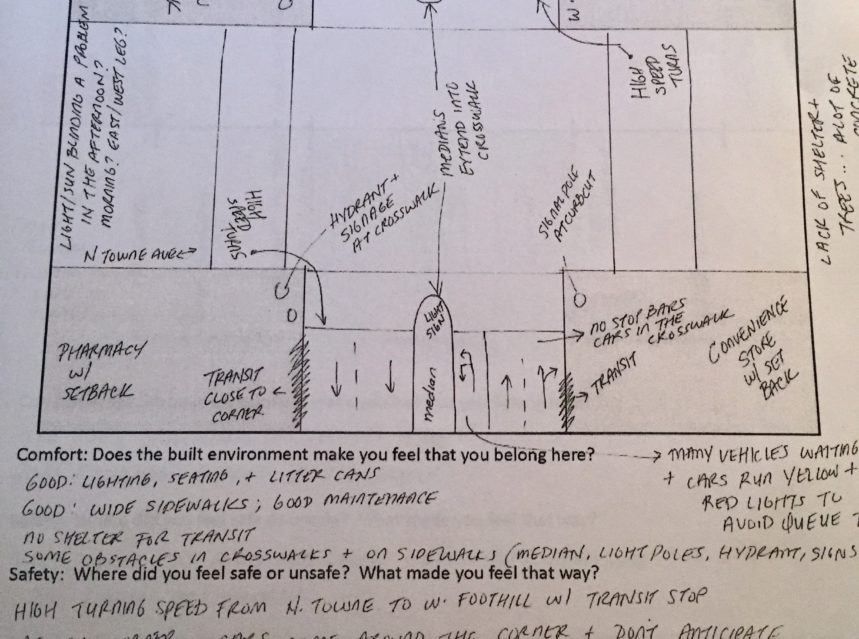 W.
HIGH
SPEED
TURNS
LIGHT/SUN BLINDING A PROBLEM
IN THE AFTERNOON?
MORNING? EAST/WEST LEG?
MEDIANS
EXTEND INTO
CROSSWALK
LACK OF SHELTER +
TREES... A LOT OF
CONCRETE
HYDRANT +
SIGNAGE
AT CROSSWALK
SIGNAL POLE
AT CURBCUT
HIGH
SPEED
TURNS
N TOWNE AVE
LIGHT
SIGN
NO STOP BARS
CARS IN THE
CROSSWALK
PHARMACY
W/
SETBACK
TRANSIT
CLOSE TO
CORNER
median
TRANSIT
CONVENIENCE
STORE
W/ SET
BACK
Comfort: Does the built environment make you feel that you belong here?
MANY VEHICLES WAITING
+ CARS RUN YELLOW +
RED LIGHTS TO
AVOID QUEUE
GOOD: LIGHTING, SEATING, + LITTER CANS
GOOD: WIDE SIDEWALKS; GOOD MAINTENANCE
NO SHELTER FOR TRANSIT
SOME OBSTACLES IN CROSSWALKS + ON SIDEWALKS (MEDIAN, LIGHT POLES, HYDRANT, SIGNS
Safety: Where did you feel safe or unsafe? What made you feel that way?
HIGH TURNING SPEED FROM N. TOWNE TO W. FOOTHILL W/ TRANSIT STOP
AROUND THE CORNER + DON'T ANTICIPATE